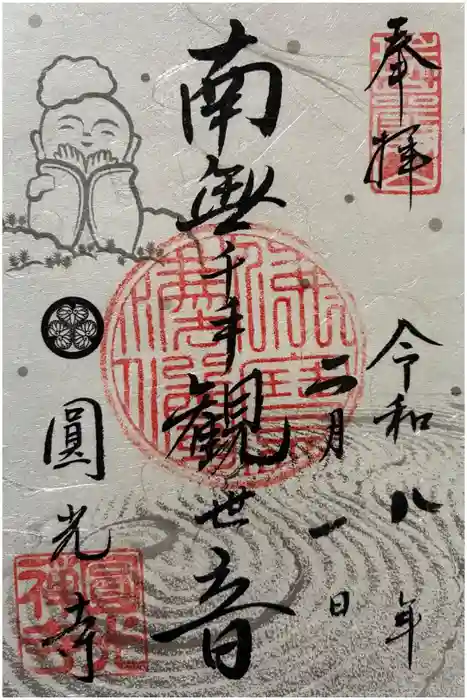 奉拝
令和八年
二月一日
南無千手観世音
圓光寺
圓光禅寺